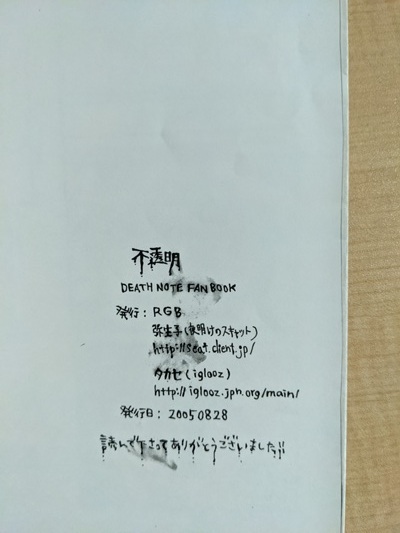 不透明
DEATH NOTE FAN BOOK
発行: RGB
弥生子(夜明けのスキャット)
http://scat.client.jp/
タカセ(iglooz)
http://iglooz.jpn.org/main/
発行日: 20050828
読んで下さってありがとうございました!!